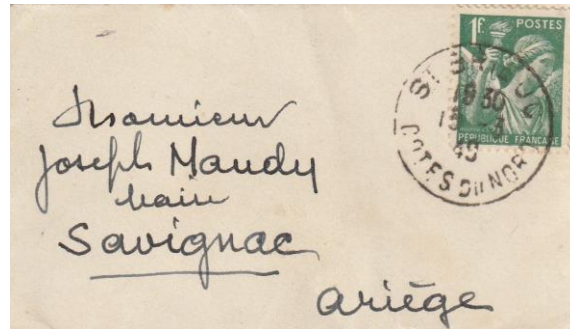 1F. POSTES
RÉPUBLIQUE FRANÇAISE
ST BRIEUC
18 30
COTES DU NORD
Monsieur
Joseph Maudy
Maire
Savignac
Ariège